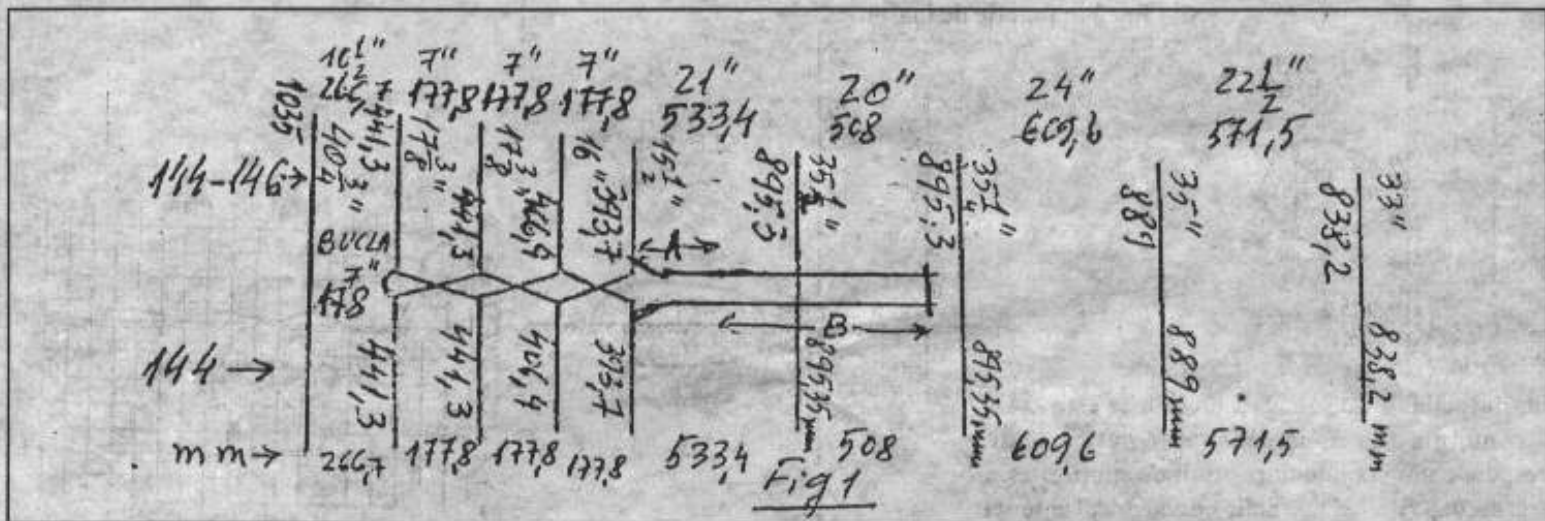 10½" 7" 7" 7" 21" 20" 24" 22½"
266,7 177,8 177,8 177,8 533,4 508 609,6 571,5
1035
40¾"
441,3 17⅜"
441,3 17⅜"
406,4 16"
393,7 15½"
895,3
895,3
889 35"
838,2 33"
144-146→
BUCLA
7"
178
A
B
144 →
441,3 441,3 406,4 393,7 895,35 mm 895,35 mm 889 mm 838,2 mm
mm→ 266,7 177,8 177,8 177,8 533,4 508 609,6 571,5
Fig 1